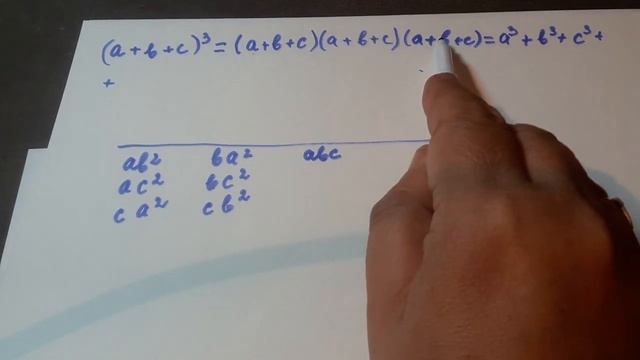 (a+b+c)³ = (a+b+c)(a+b+c)(a+b+c) = a³ + b³ + c³ +
+
ab² ba² abc
ac² bc²
ca² cb²